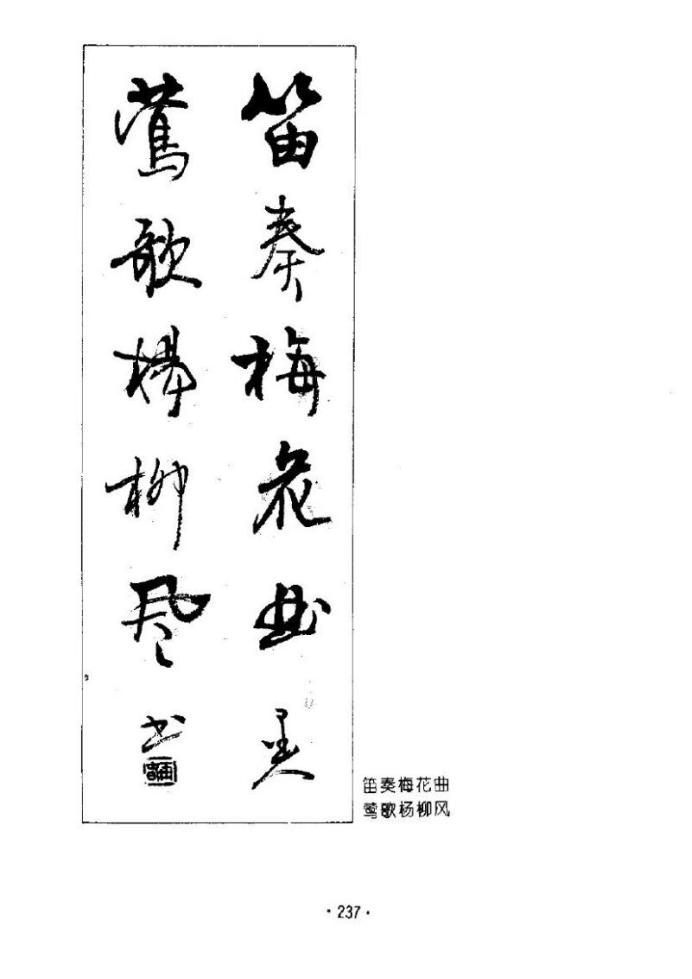 笛奏梅花曲
莺歌杨柳风书
笛奏梅花曲
莺歌杨柳风
·237·